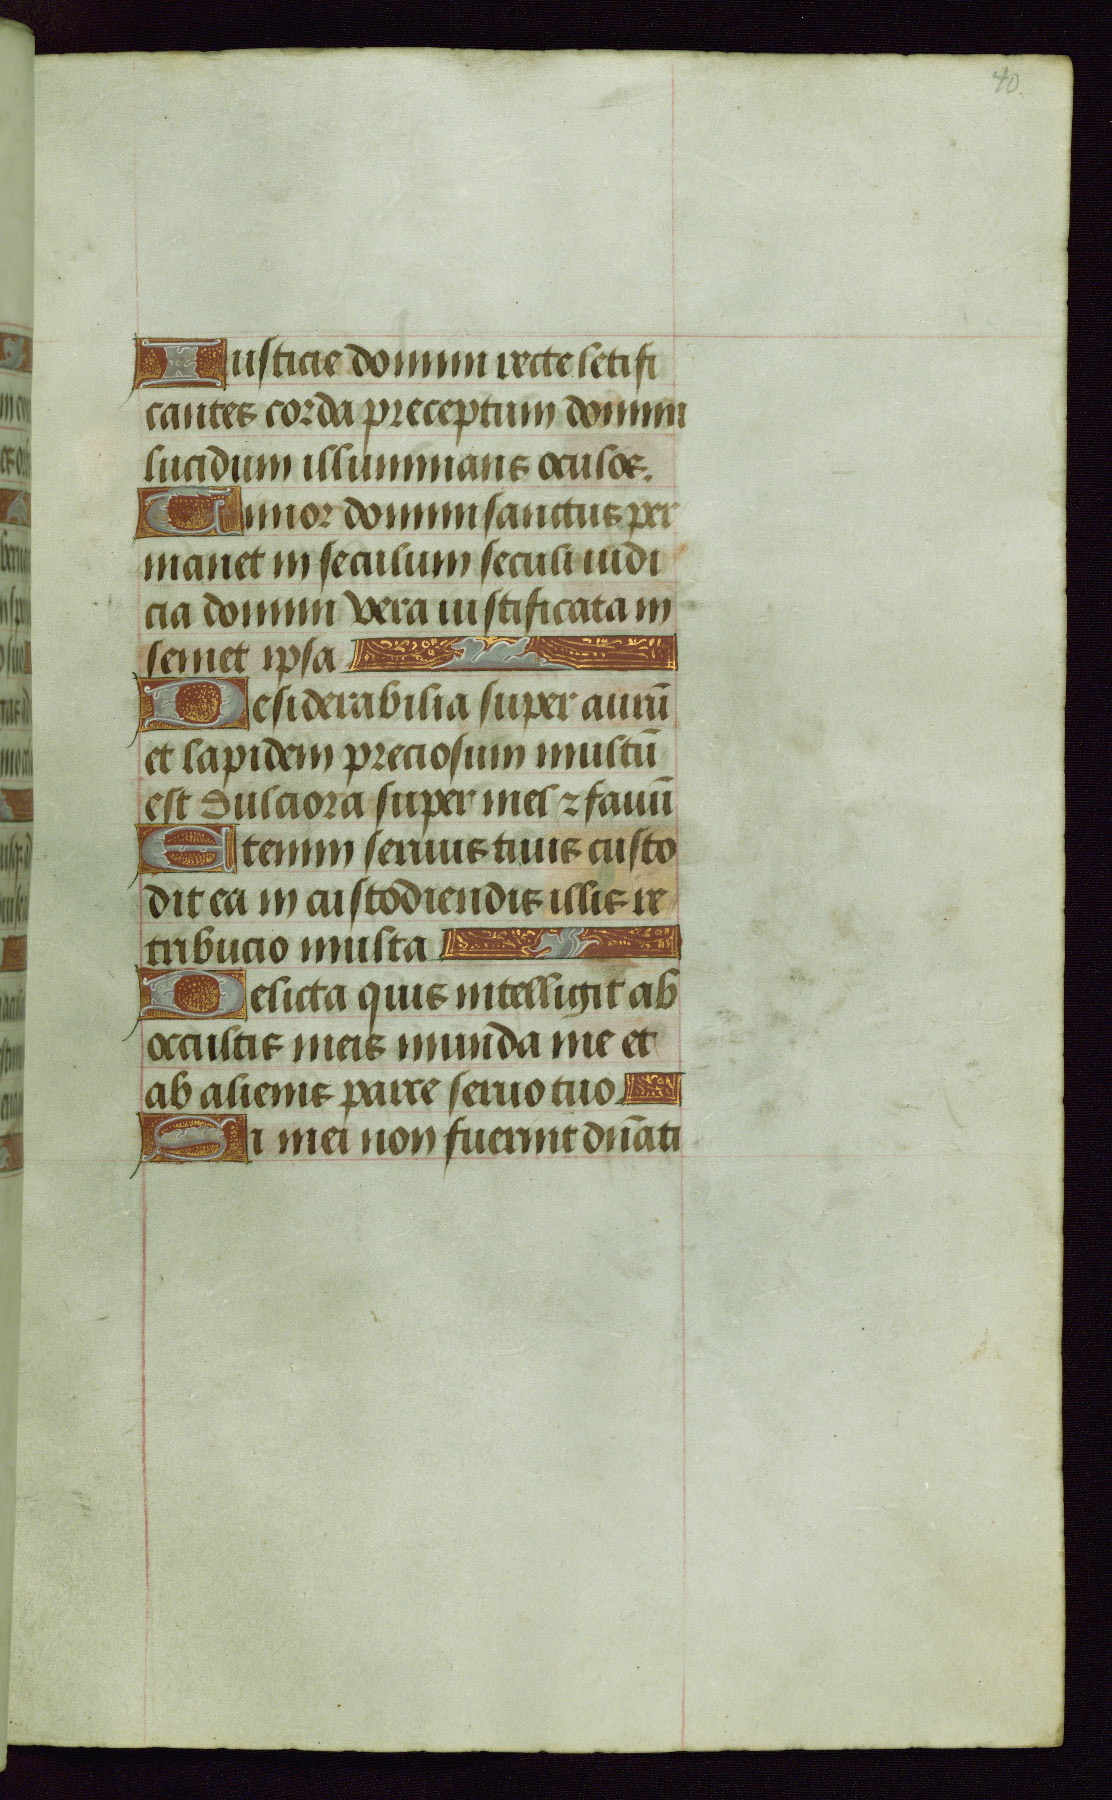 40
Iusticie domini recte letifi
cantes corda preceptum domini
lucidum illuminans oculos.
Timor domini sanctus per
manet in seculum seculi iudi
cia domini vera iustificata in
semet ipsa
Desiderabilia super aurū
et lapidem preciosum multū
est dulciora super mel ⁊ fauū
Etenim seruus tuus custo
dit ea in custodiendis illis re
tribucio multa
Delicta quis intelligit ab
occultis meis munda me et
ab alienis parce seruo tuo
Si mei non fuerint dn̄ati